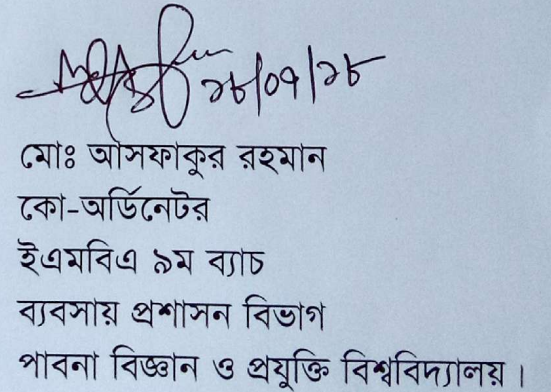 ১৮/০৭/১৮
মোঃ আসফাকুর রহমান
কো-অর্ডিনেটর
ইএমবিএ ৯ম ব্যাচ
ব্যবসায় প্রশাসন বিভাগ
পাবনা বিজ্ঞান ও প্রযুক্তি বিশ্ববিদ্যালয়।